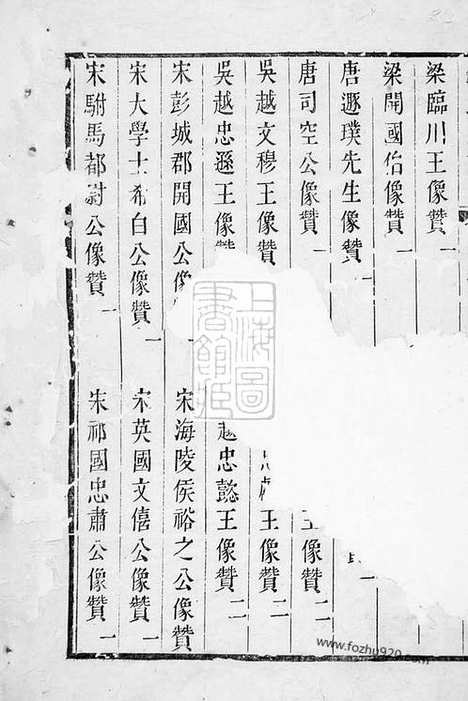 梁臨川王像贊 一
梁開國伯像贊 一
唐遯璞先生像贊 一
一
唐司空公像贊 一
王像贊 二
吳越文穆王像贊
王像贊 二
吳越忠遜王像贊
越忠懿王像贊 二
宋彭城郡開國公像 一
宋海陵侯裕之公像贊
宋大學士希白公像贊 一
宋英國文僖公像贊 一
宋駙馬都尉公像贊 一
宋祁國忠肅公像贊 一
上海圖書館藏
www.fozhu920.com